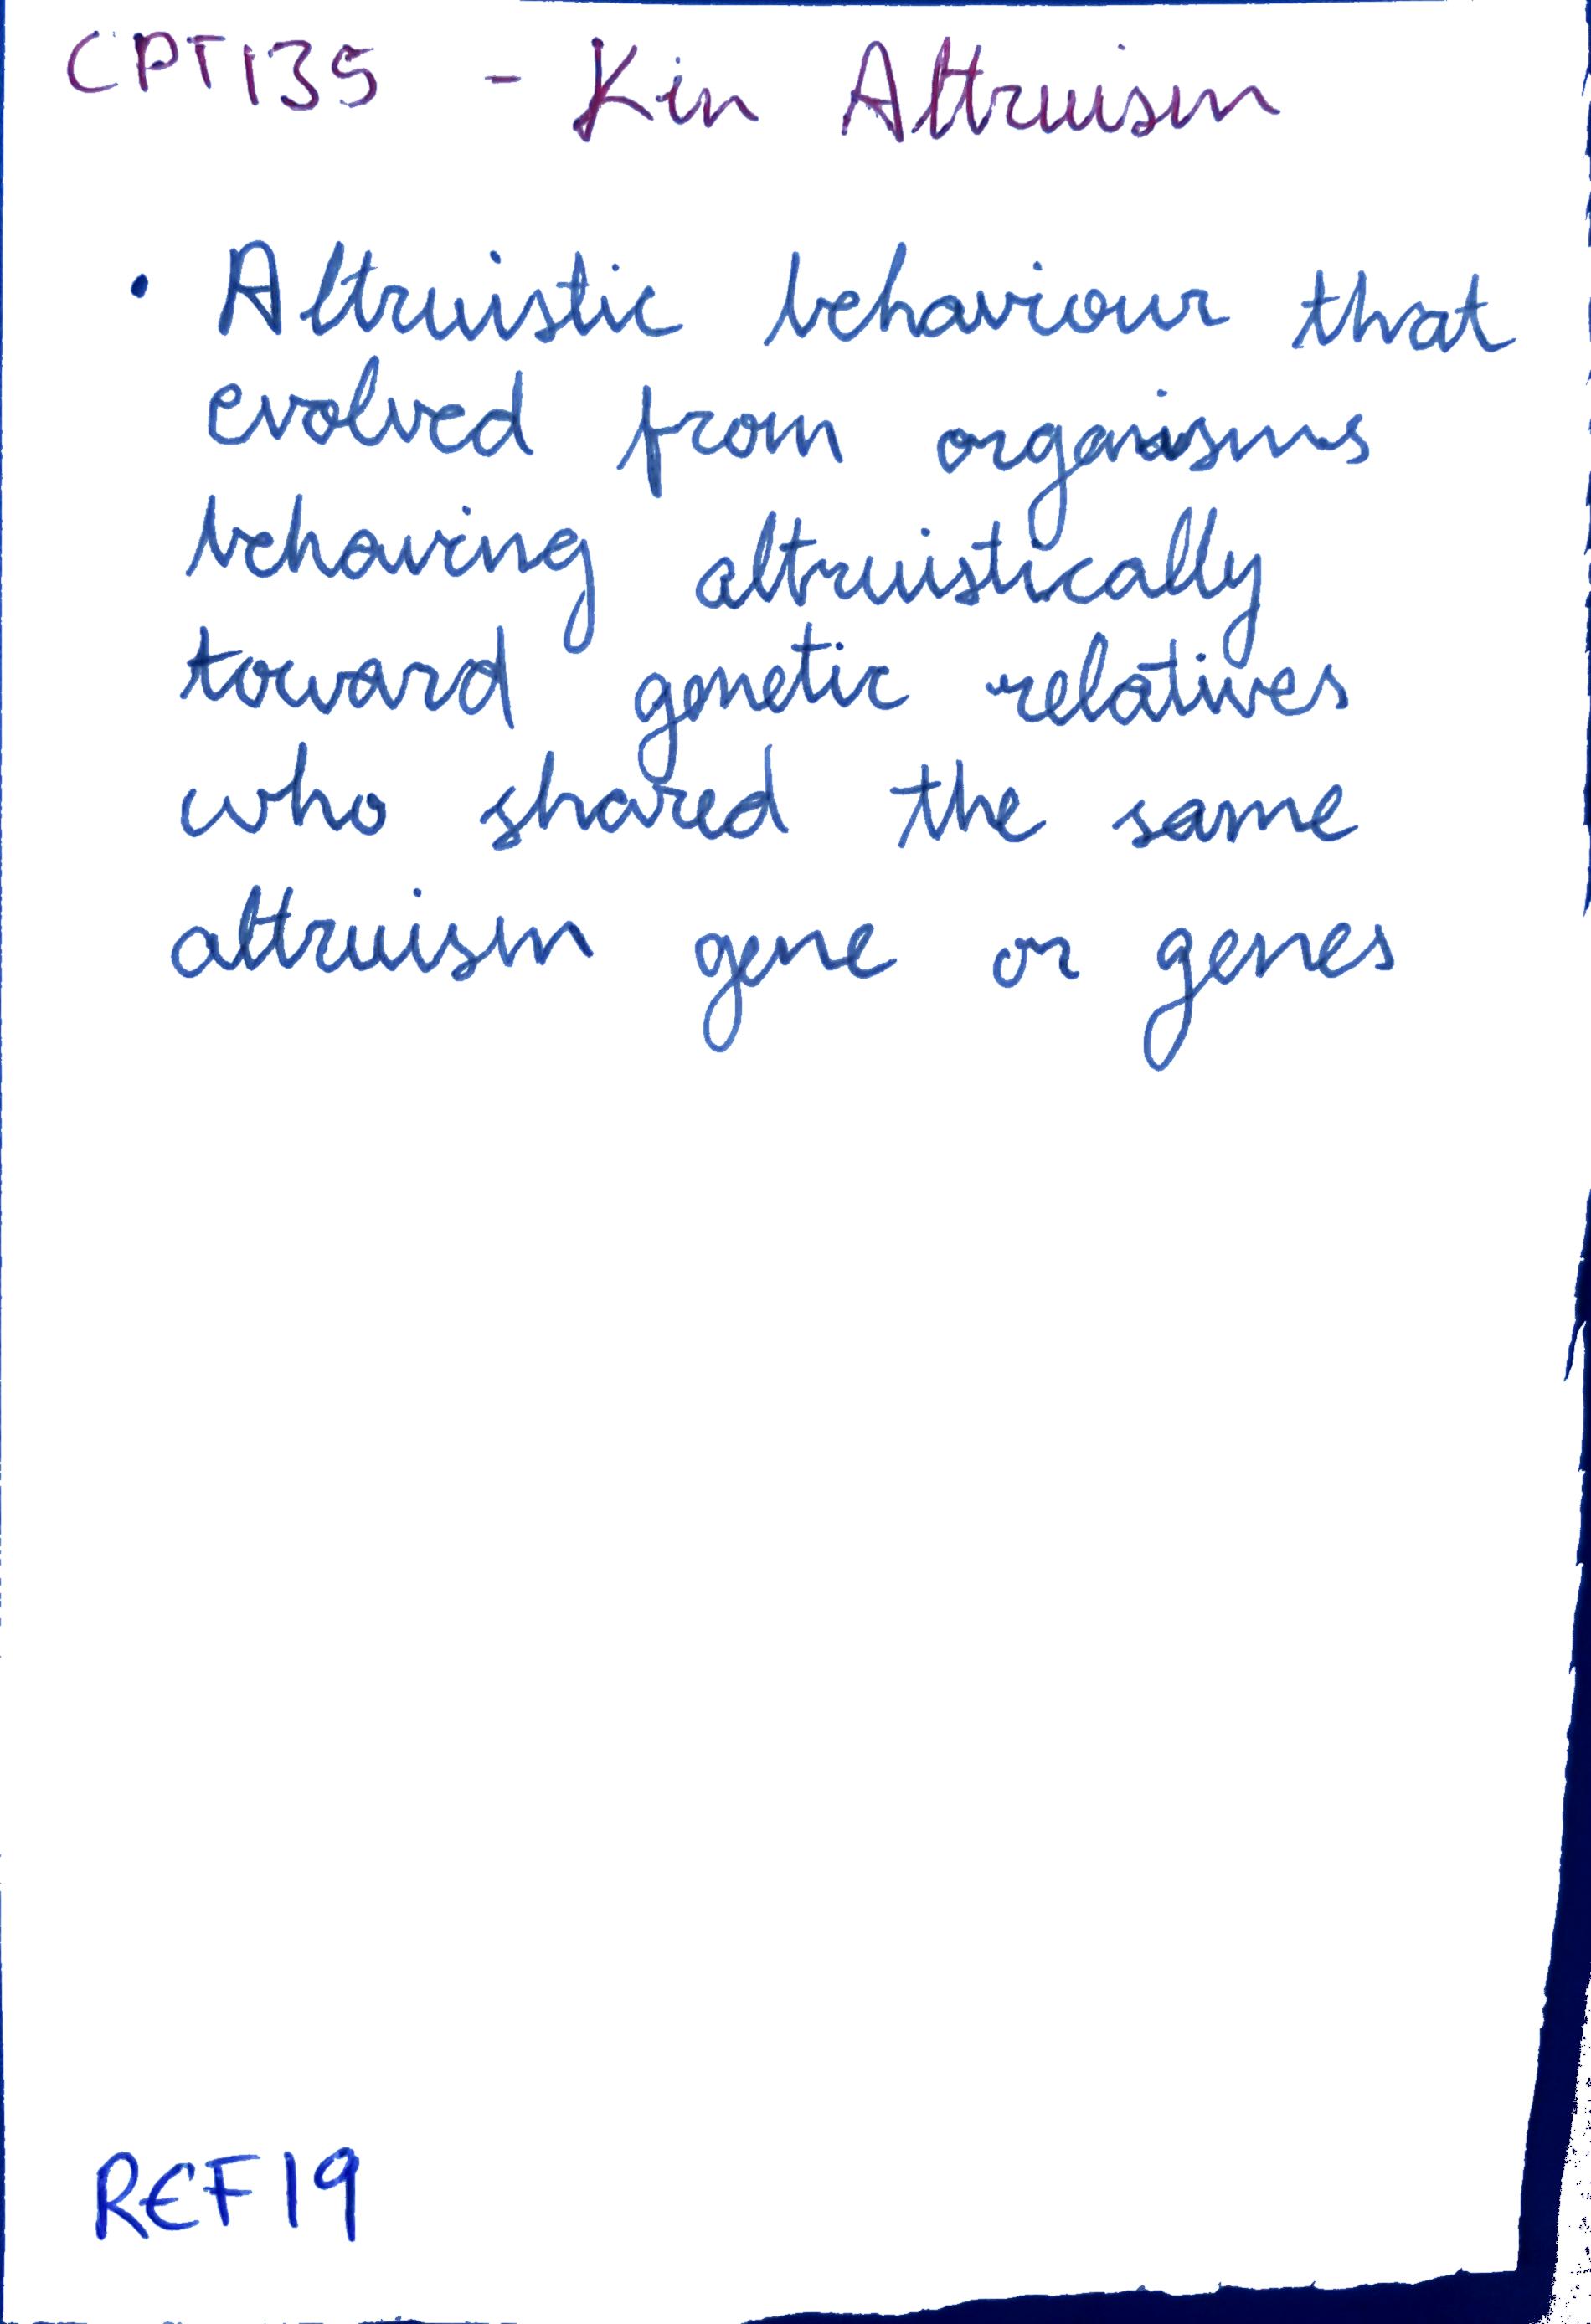 CPT135 - Kin Altruism
• Altruistic behaviour that
evolved from organisms
behaving altruistically
toward genetic relatives
who shared the same
altruism gene or genes
REF19